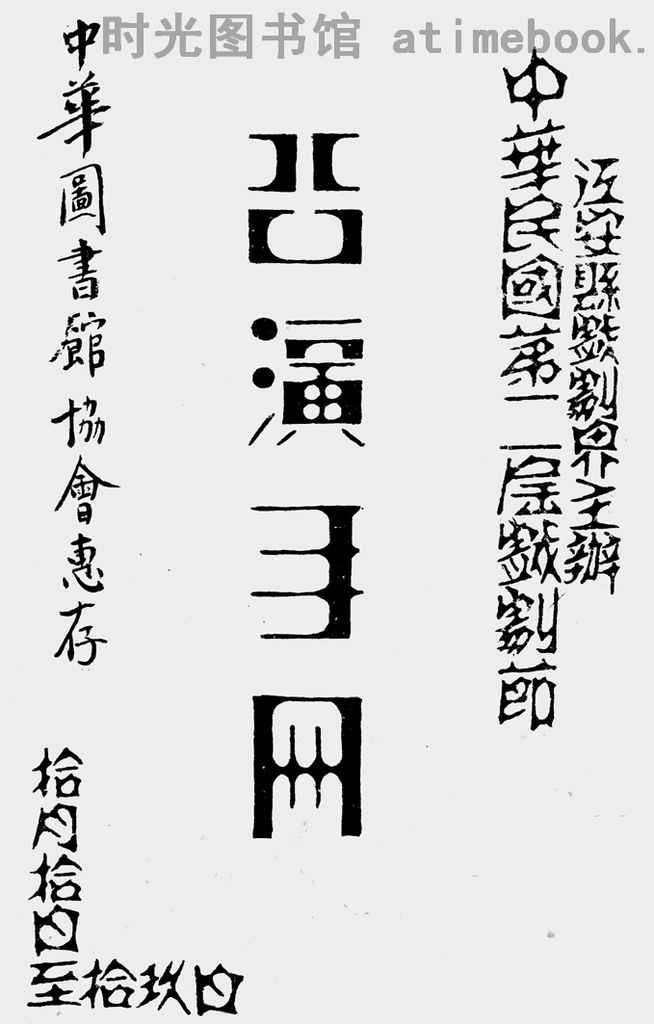 时光图书馆 atimebook.
江安縣戲劇界主辦
中華民國第二屆戲劇節
公演手冊
中華圖書館協會惠存
拾月拾日
至拾玖日